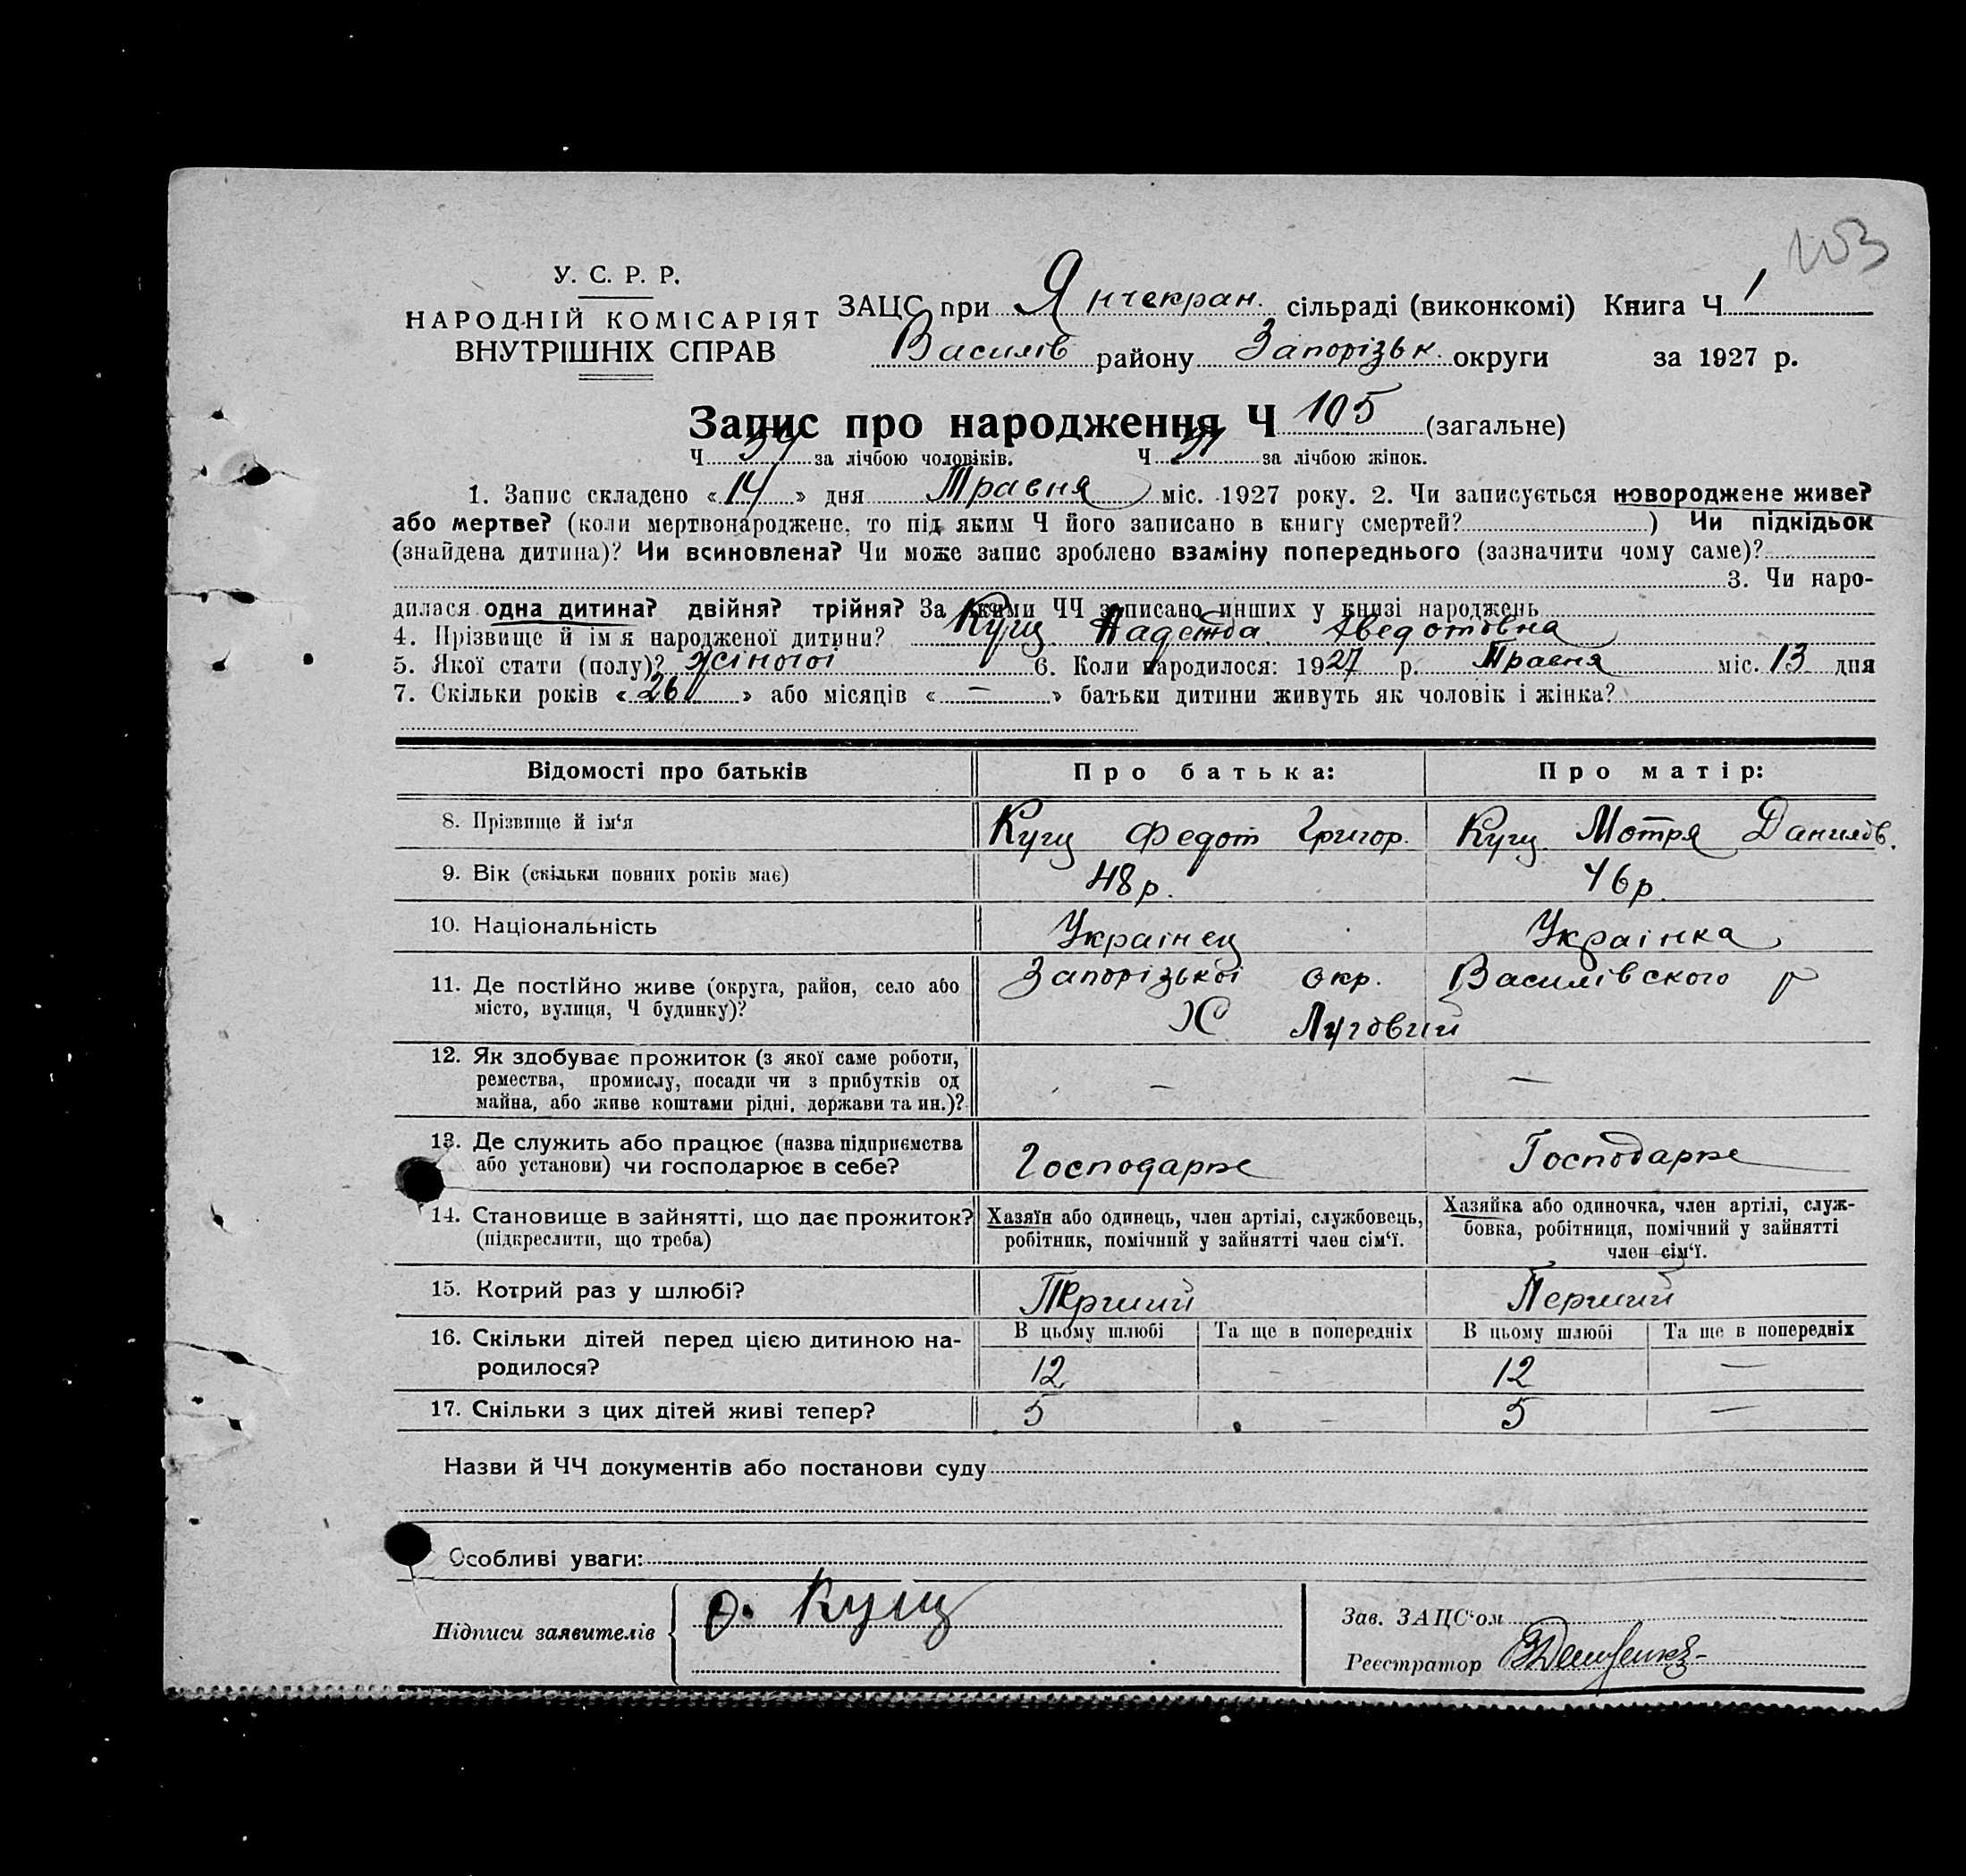 103
У. С. Р. Р.
НАРОДНІЙ КОМІСАРІЯТ
ВНУТРІШНІХ СПРАВ
ЗАЦС при Янчекран. сільраді (виконкомі) Книга Ч 1
Василів району Запорізьк. округи за 1927 р.
Запис про народження Ч 105 (загальне)
Ч за лічбою чоловіків. Ч за лічбою жінок.
1. Запис складено «14» дня Травня міс. 1927 року. 2. Чи записується новороджене живе?
або мертве? (коли мертвонароджене, то під яким Ч його записано в книгу смертей? ) Чи підкідьок
(знайдена дитина)? Чи всиновлена? Чи може запис зроблено взаміну попереднього (зазначити чому саме)?
3. Чи наро-
дилася одна дитина? двійня? трійня? За якими ЧЧ записано инших у книзі народжень
4. Прізвище й ім'я народженої дитини? Кущ Надежда Хведотовна
5. Якої стати (полу)? жіночої 6. Коли народилося: 1927 р. Травня міс. 13 дня
7. Скільки років «26» або місяців «—» батьки дитини живуть як чоловік і жінка?
Відомості про батьків Про батька: Про матір:
8. Прізвище й ім'я Кущ Федот Григор. Кущ Мотря Данилов.
9. Вік (скільки повних років має) 48 р. 46 р.
10. Національність Українец Українка
11. Де постійно живе (округа, район, село або
місто, вулиця, Ч будинку)?
Запорізької окр. Василівского р
Х Луговий
12. Як здобуває прожиток (з якої саме роботи,
ремества, промислу, посади чи з прибутків од
майна, або живе коштами рідні, держави та ин.)?
— —
13. Де служить або працює (назва підприємства
або установи) чи господарює в себе?
Господарює Господарює
14. Становище в зайнятті, що дає прожиток?
(підкреслити, що треба)
Хазяїн або одинець, член артілі, службовець,
робітник, помічний у зайнятті член сім'ї.
Хазяйка або одиночка, член артілі, служ-
бовка, робітниця, помічний у зайнятті
член сім'ї.
15. Котрий раз у шлюбі? Перший Перший
16. Скільки дітей перед цією дитиною на-
родилося?
В цьому шлюбі Та ще в попередніх В цьому шлюбі Та ще в попередніх
12 - 12 —
17. Скільки з цих дітей живі тепер? 5 - 5 —
Назви й ЧЧ документів або постанови суду
Особливі уваги:
Підписи заявителів Ф. Кущ
Зав. ЗАЦС'ом
Реєстратор